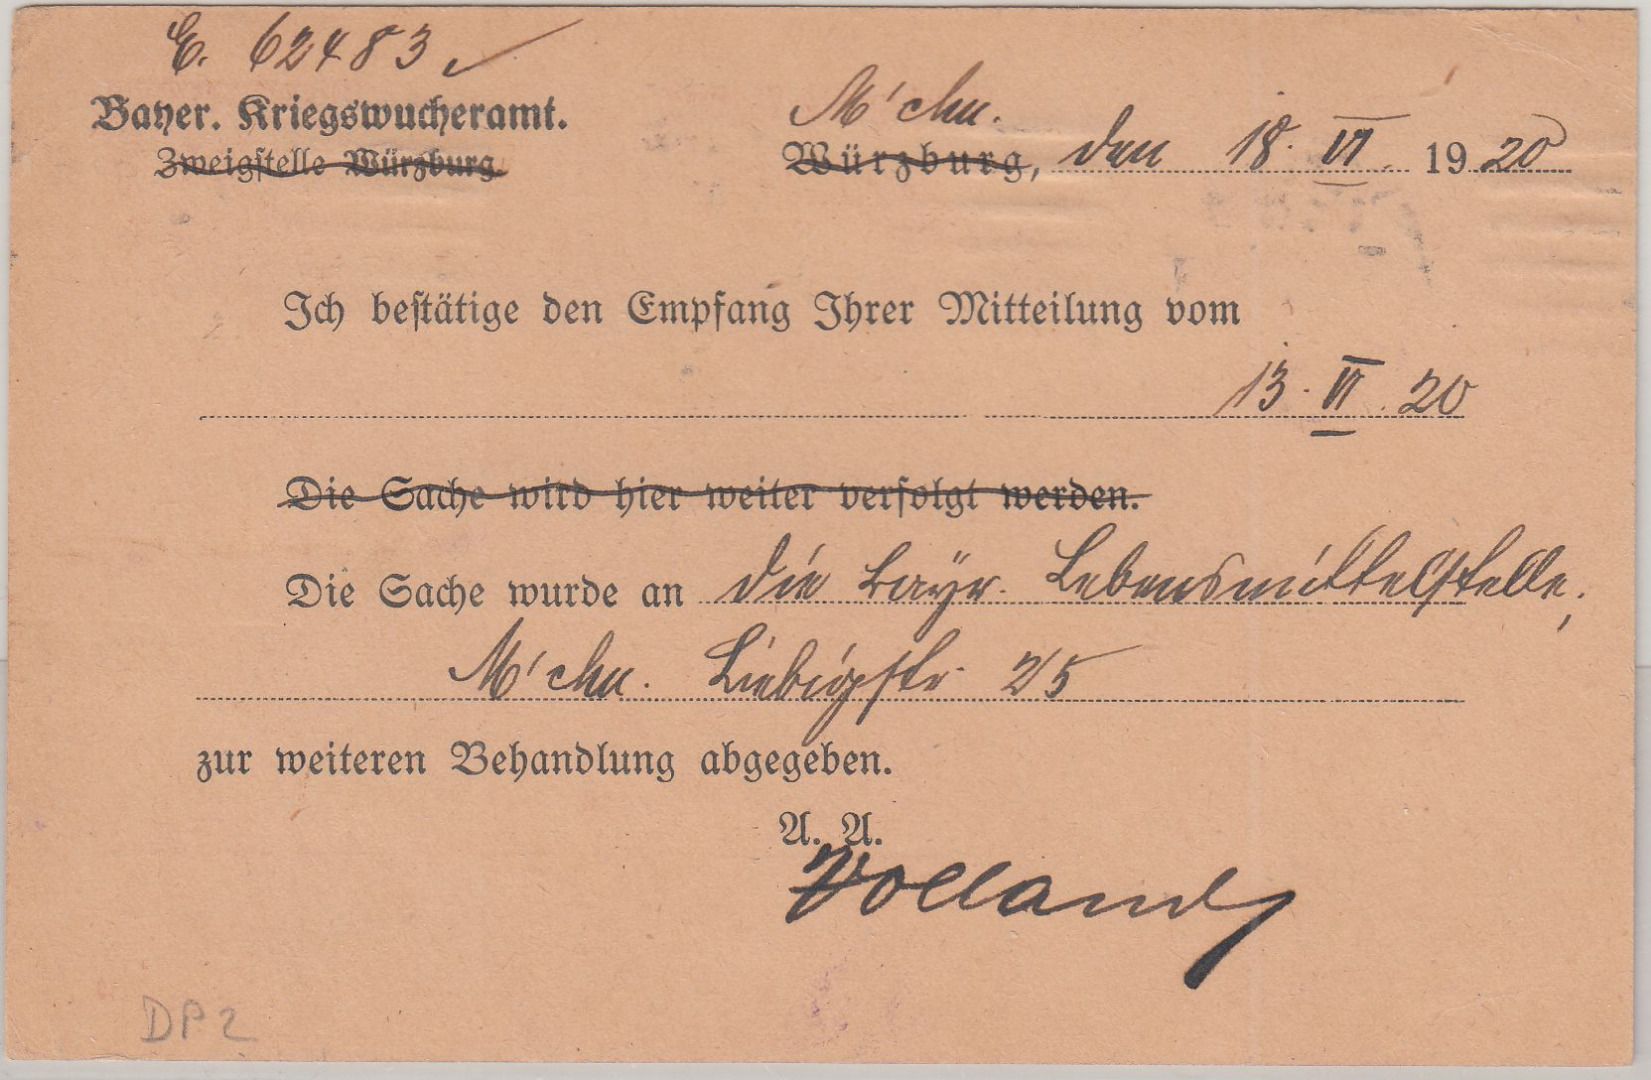 E. 62483 ✓
Bayer. Kriegswucheramt.
Zweigstelle Würzburg.
M'chn.
Würzburg, den 18. VI. 1920
Ich bestätige den Empfang Ihrer Mitteilung vom
13. VI. 20
Die Sache wird hier weiter verfolgt werden.
Die Sache wurde an die bayr. Lebensmittelstelle,
M'chn. Liebigstr. 25
zur weiteren Behandlung abgegeben.
A. A.
Volland
DP 2